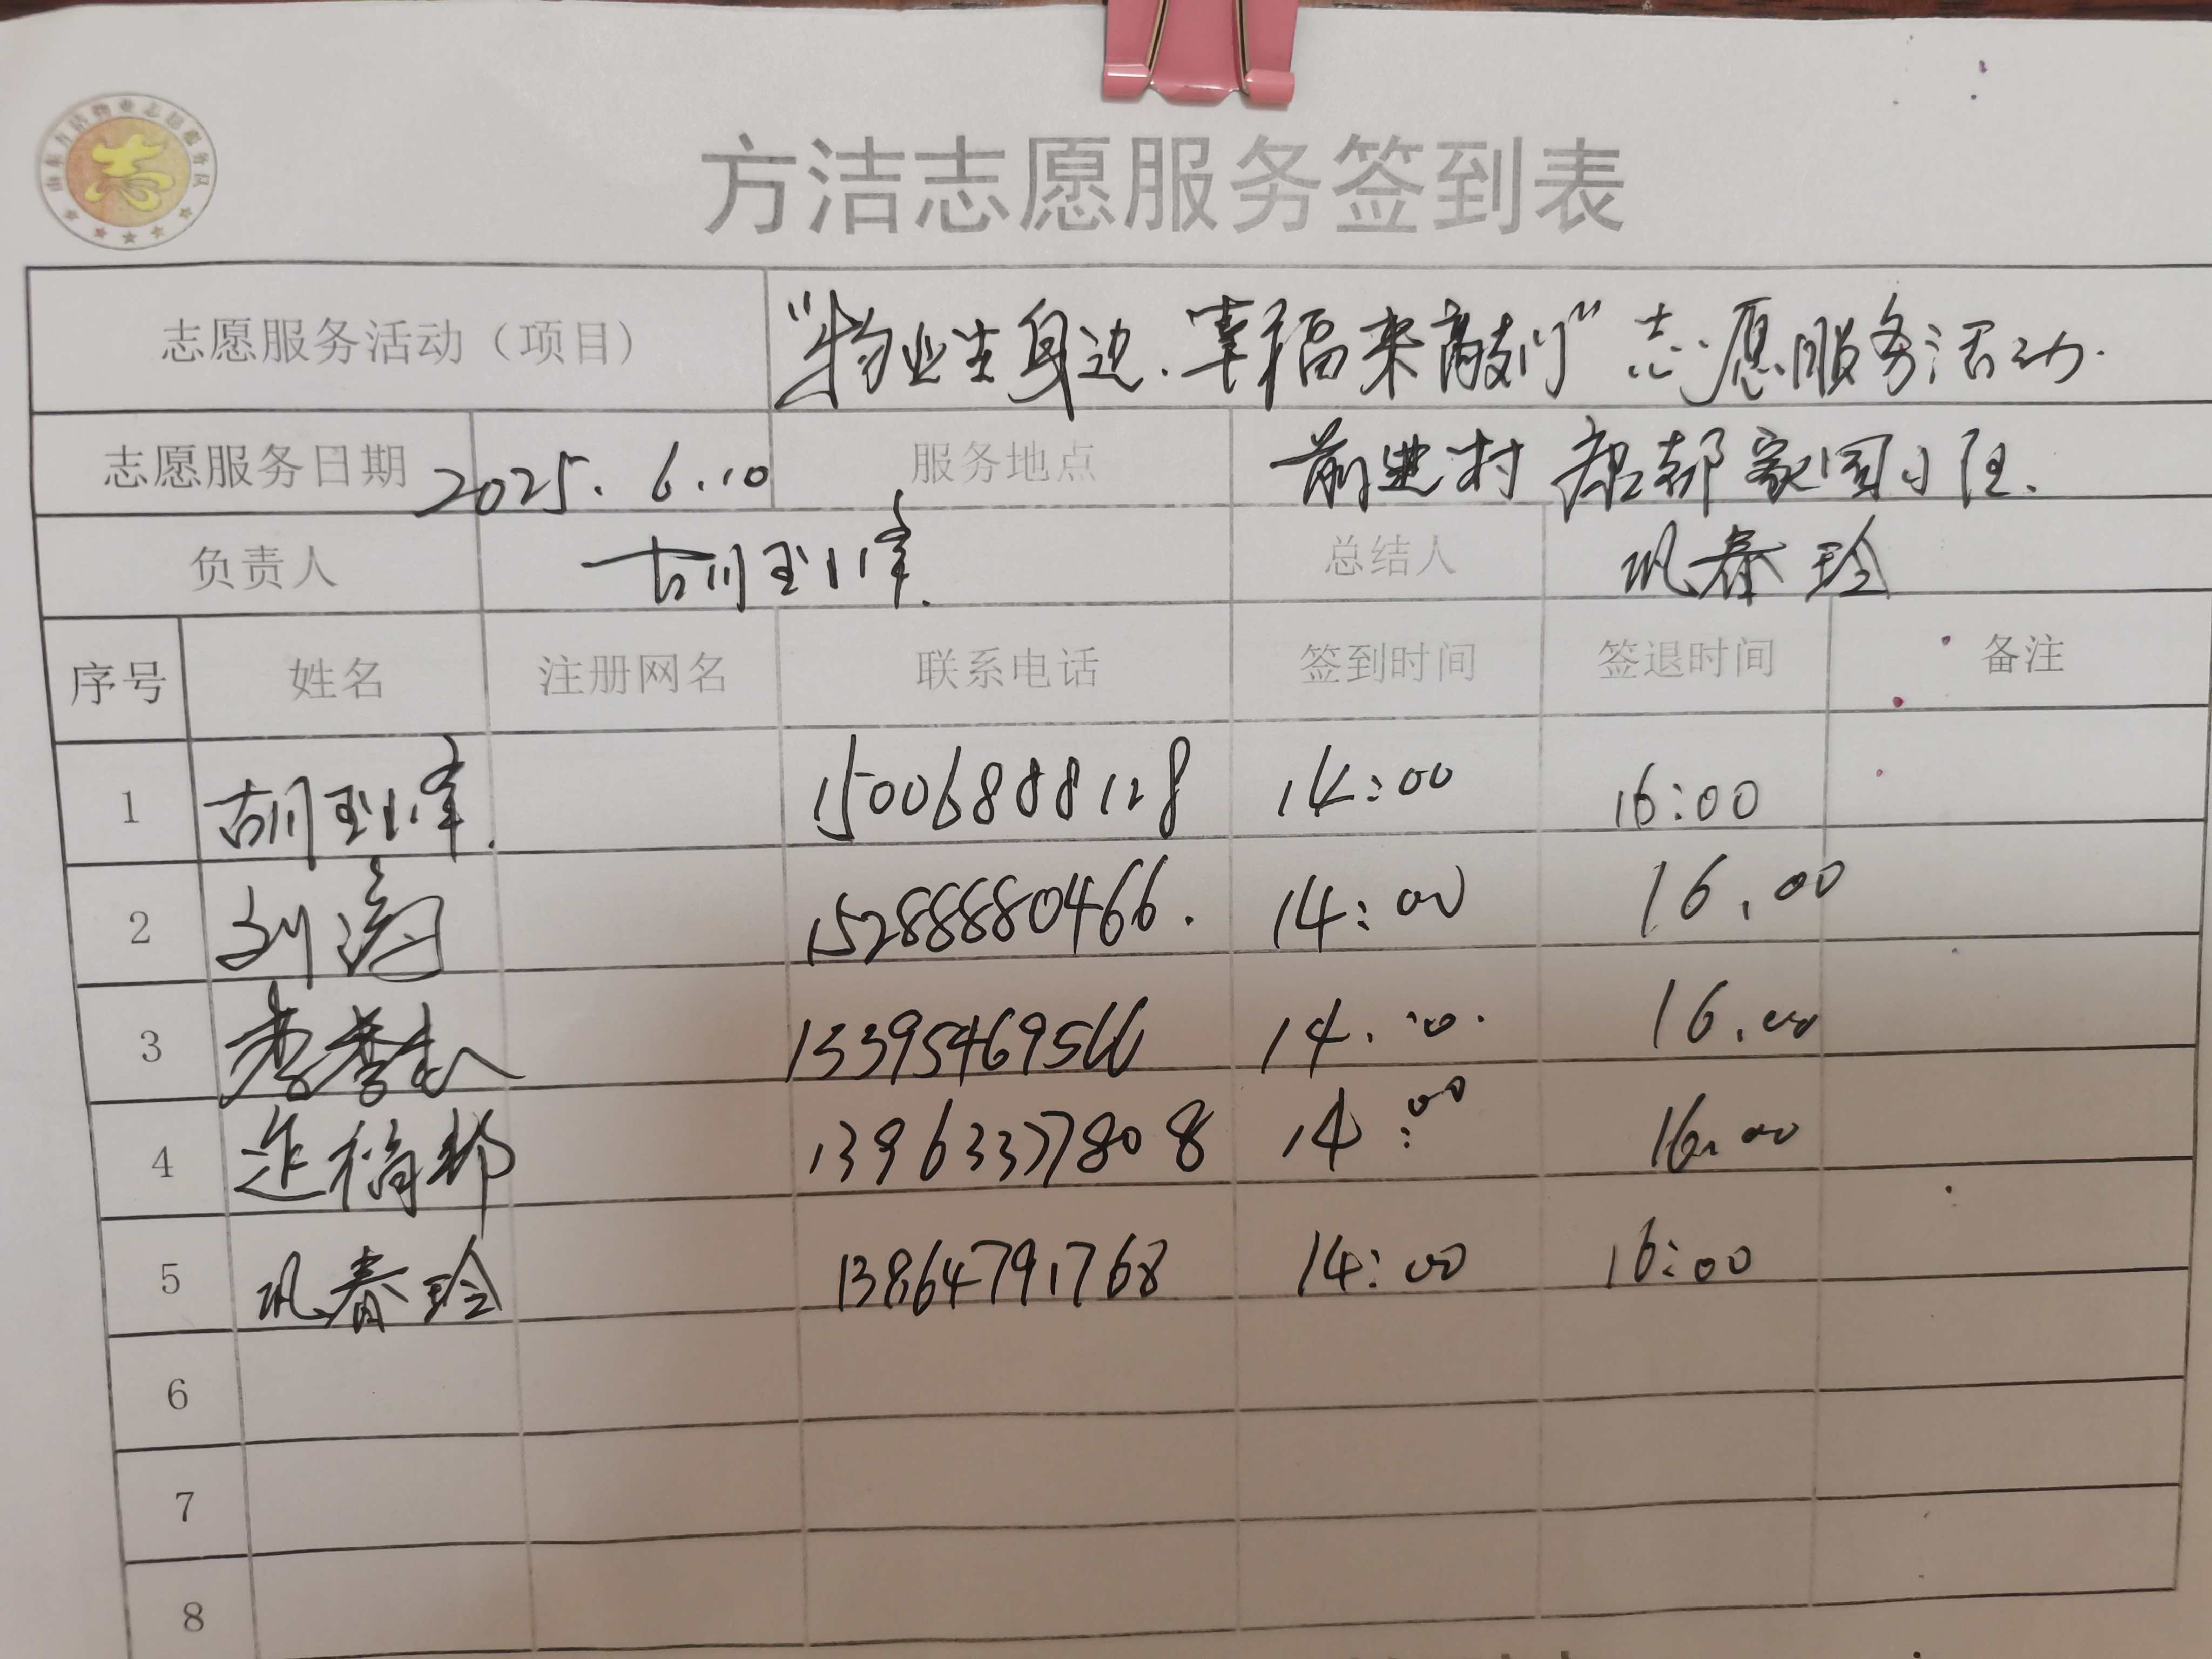 山东方洁物业志愿服务队
方洁志愿服务签到表
志愿服务活动（项目） “物业在身边.幸福来敲门”志愿服务活动.
志愿服务日期 2025.6.10 服务地点 前进村 家园小区.
负责人 胡玉峰. 总结人 巩春玲
序号 姓名 注册网名 联系电话 签到时间 签退时间 备注
1 胡玉峰. 15006888128 14:00 16:00
2 刘涛 15288880466. 14:00 16.00
3 14.00. 16.00
4 13963377808 14:00 16.00
5 巩春玲 13864791768 14:00 16:00
6
7
8